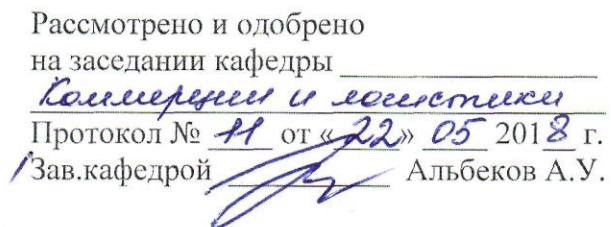 Рассмотрено и одобрено
на заседании кафедры
Коммерции и логистики
Протокол № 11 от «22» 05 2018 г.
Зав.кафедрой Альбеков А.У.